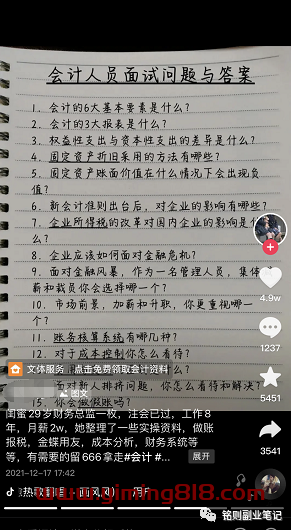 会计人员面试问题与答案
1. 会计的6大基本要素是什么?
2. 会计的3大报表是什么?
3. 权益性支出与资本性支出的差异是什么?
4. 固定资产折旧采用的方法有哪些?
5. 固定资产账面价值在什么情况下会出现负
值?
6. 新会计准则出台后, 对企业的影响有哪些?
7. 企业所得税的改革对国内企业的影响是什
么?
8. 企业应该如何面对金融危机?
9. 面对金融风暴, 作为一名管理人员, 集体
薪和裁员你会选择哪一个?
10. 市场前景, 加薪和升职, 你更重视哪一
个?
11. 账务核算系统有哪几种?
12. 对于成本控制你怎么看待?
文体服务 点击免费领取会计资料
面对新人排挤问题, 你怎么看待和解决?
15. 你会做假账吗?
4.9w
1237
5451
3541
图文
闺蜜29岁财务总监一枚, 注会已过, 工作8
年, 月薪2w, 她整理了一些实操资料, 做账
报税, 金蝶用友, 成本分析, 财务系统等
等, 有需要的留666拿走#会计 #...
展开
2021-12-17 17:42
铭则副业笔记